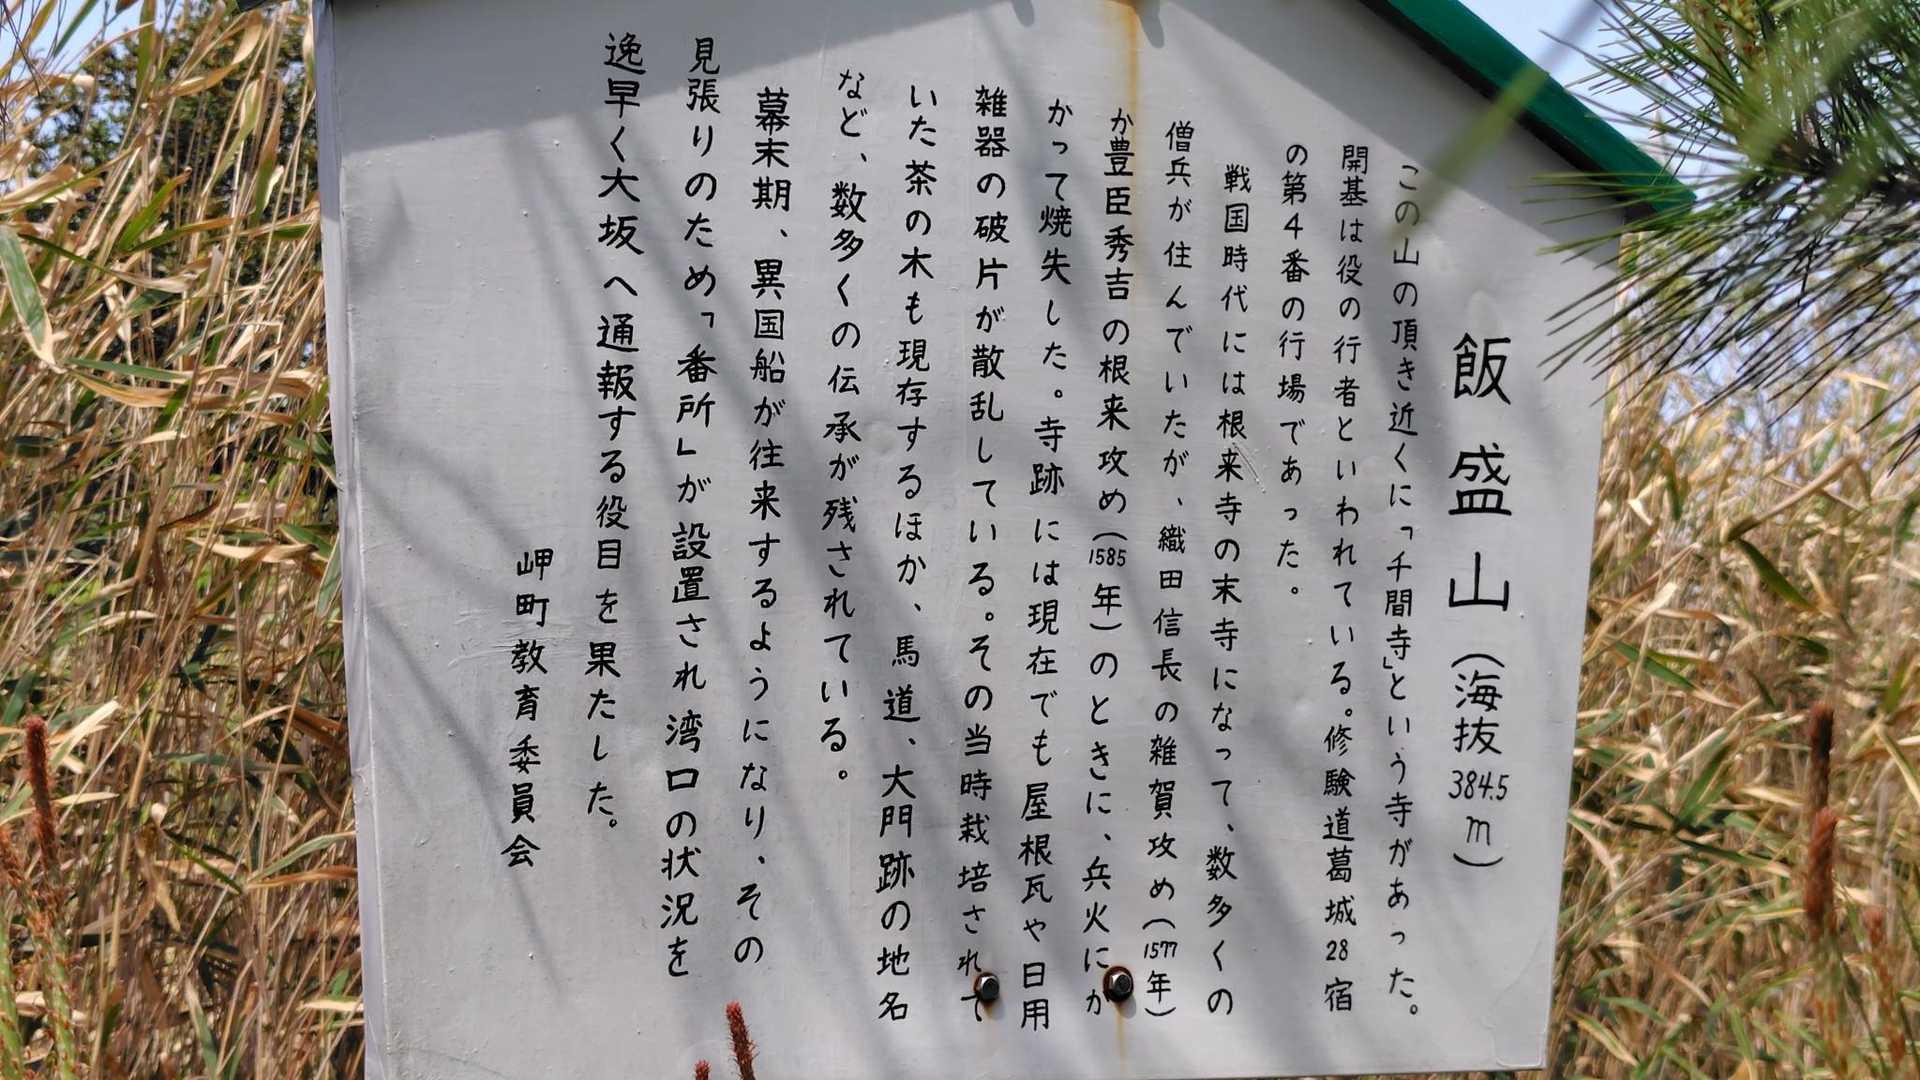 飯盛山（海抜384.5m）
この山の頂き近くに「千間寺」という寺があった。
開基は役の行者といわれている。修験道葛城28宿
の第4番の行場であった。
戦国時代には根来寺の末寺になって、数多くの
僧兵が住んでいたが、織田信長の雑賀攻め（1577年）
か豊臣秀吉の根来攻め（1585年）のときに、兵火にか
かって焼失した。寺跡には現在でも屋根瓦や日用
雑器の破片が散乱している。その当時栽培されて
いた茶の木も現存するほか、馬道、大門跡の地名
など、数多くの伝承が残されている。
幕末期、異国船が往来するようになり、その
見張りのため「番所」が設置され湾口の状況を
逸早く大坂へ通報する役目を果たした。
岬町教育委員会